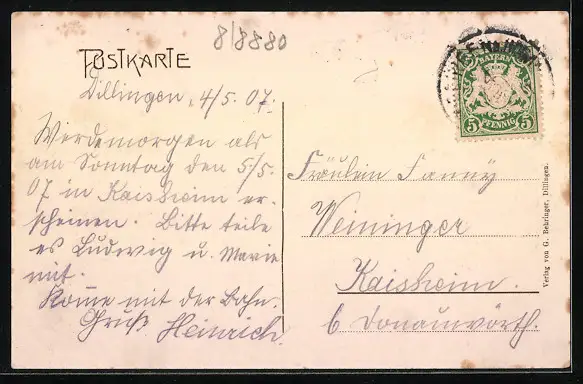 8/8880
POSTKARTE
Dillingen, 4/5. 07.
Werde morgen als
am Sonntag den 5/5.
07 in Kaisheim er-
scheinen. Bitte teile
es Ludwig u. Marie
mit.
Kome mit der Bahn.
Gruß Heinrich.
BAYERN
5 PFENNIG 5
Fräulein Fanny
Weininger
Kaisheim.
b Donauwörth.
Verlag von G. Behringer, Dillingen.